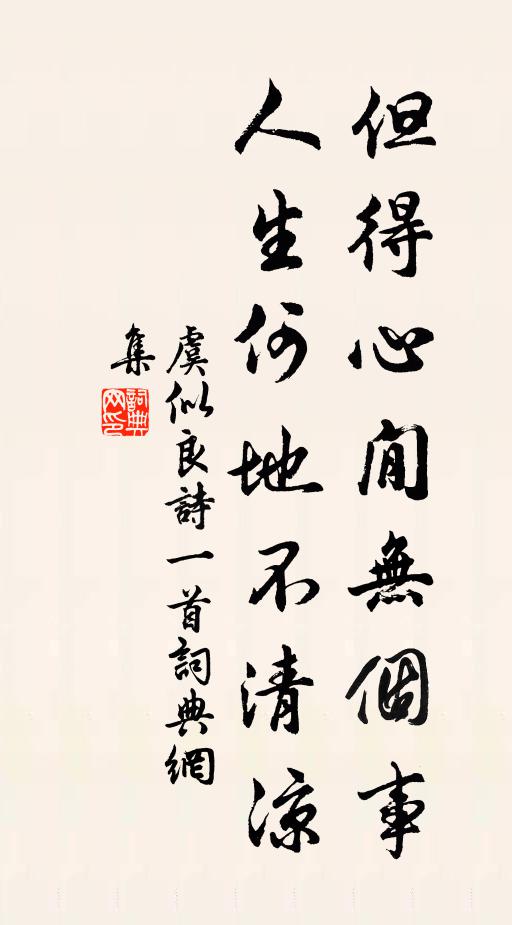 但得心閒無個事
人生何地不清涼
虞似良詩一首詞典網
集
詞典
网印